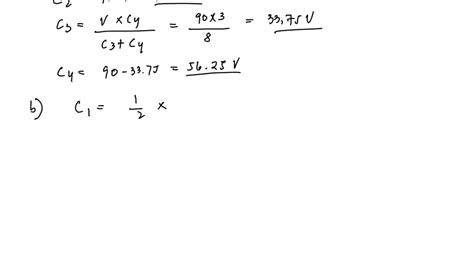 C₂
C₃ = V × C₄ / C₃ + C₄ = 90 × 3 / 8 = 33,75 V
C₄ = 90 - 33.75 = 56.25 V
b) C₁ = 1/2 ×